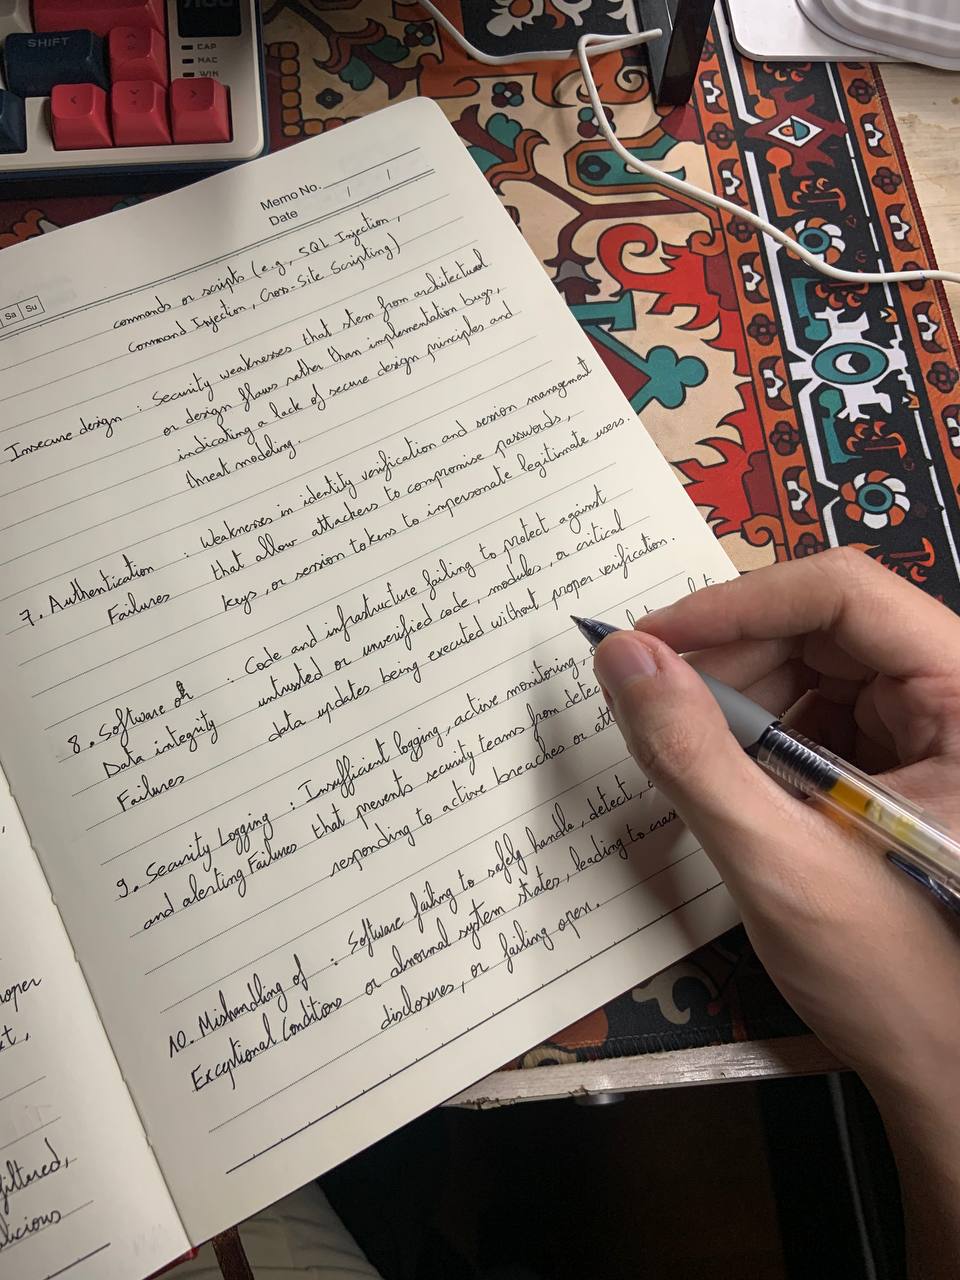 SHIFT
CAP
MAC
WIN
Memo No.
Date / /
Sa Su
commands or scripts (e.g., SQL Injection,
Command Injection, Cross-Site Scripting)
Insecure design : Security weaknesses that stem from architectural
or design flaws rather than implementation bugs,
indicating a lack of secure design principles and
threat modeling.
7. Authentication : Weaknesses in identity verification and session management
Failures that allow attackers to compromise passwords,
keys, or session tokens to impersonate legitimate users.
8. Software or : Code and infrastructure failing to protect against
Data integrity untrusted or unverified code, modules, or critical
Failures data updates being executed without proper verification.
9. Security Logging : Insufficient logging, active monitoring,
and alerting Failures that prevents security teams from detec
responding to active breaches or att
10. Mishandling of : Software failing to safely handle, detect,
Exceptional Conditions or abnormal system states, leading to cras
disclosures, or failing open.
roper
xt,
filtered,
licious